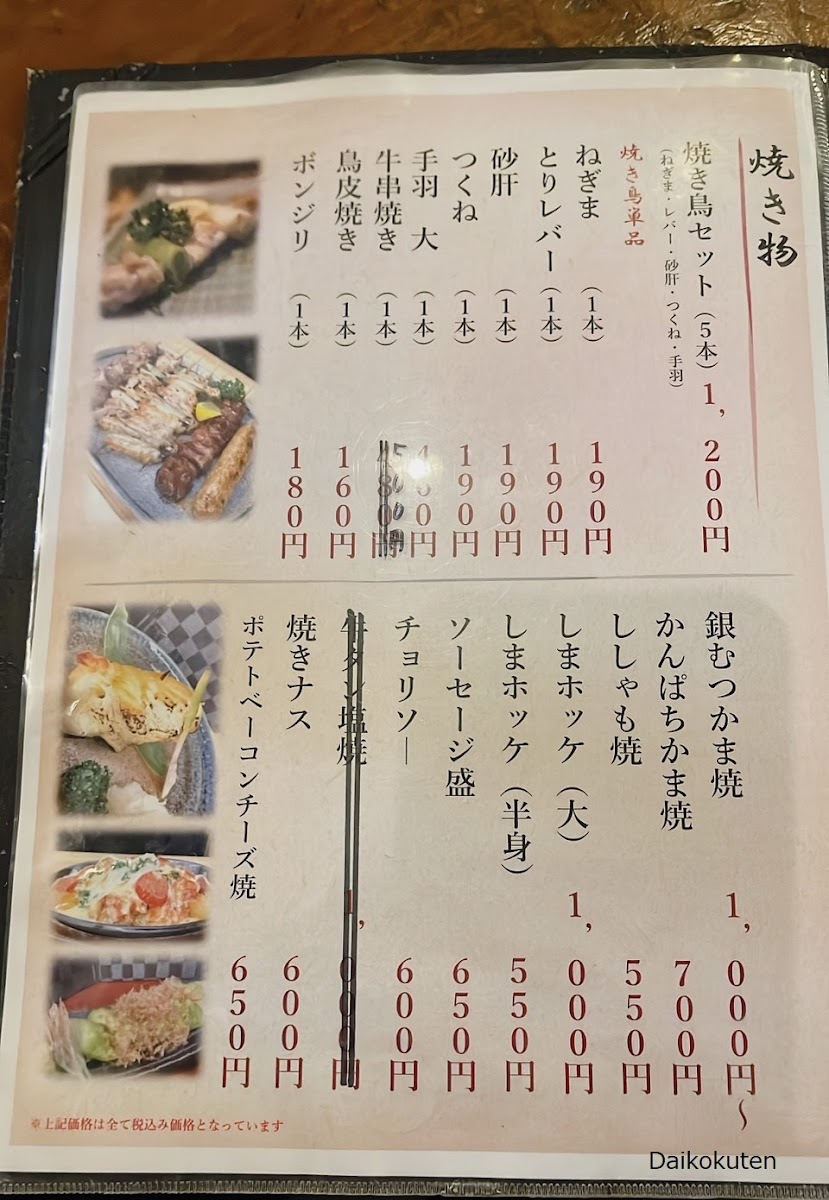 焼き物
焼き鳥セット（5本）1,200円
（ねぎま・レバー・砂肝・つくね・手羽）
焼き鳥単品
ねぎま（1本）190円
とりレバー（1本）190円
砂肝（1本）190円
つくね（1本）190円
手羽 大（1本）460円
牛串焼き（1本）500円
鳥皮焼き（1本）160円
ボンジリ（1本）180円
銀むつかま焼 1,000円～
かんぱちかま焼 700円
ししゃも焼 550円
しまホッケ（大）1,000円
しまホッケ（半身）550円
ソーセージ盛 650円
チョリソー 600円
牛タン塩焼 1,000円
焼きナス 600円
ポテトベーコンチーズ焼 650円
※上記価格は全て税込み価格となっています
Daikokuten